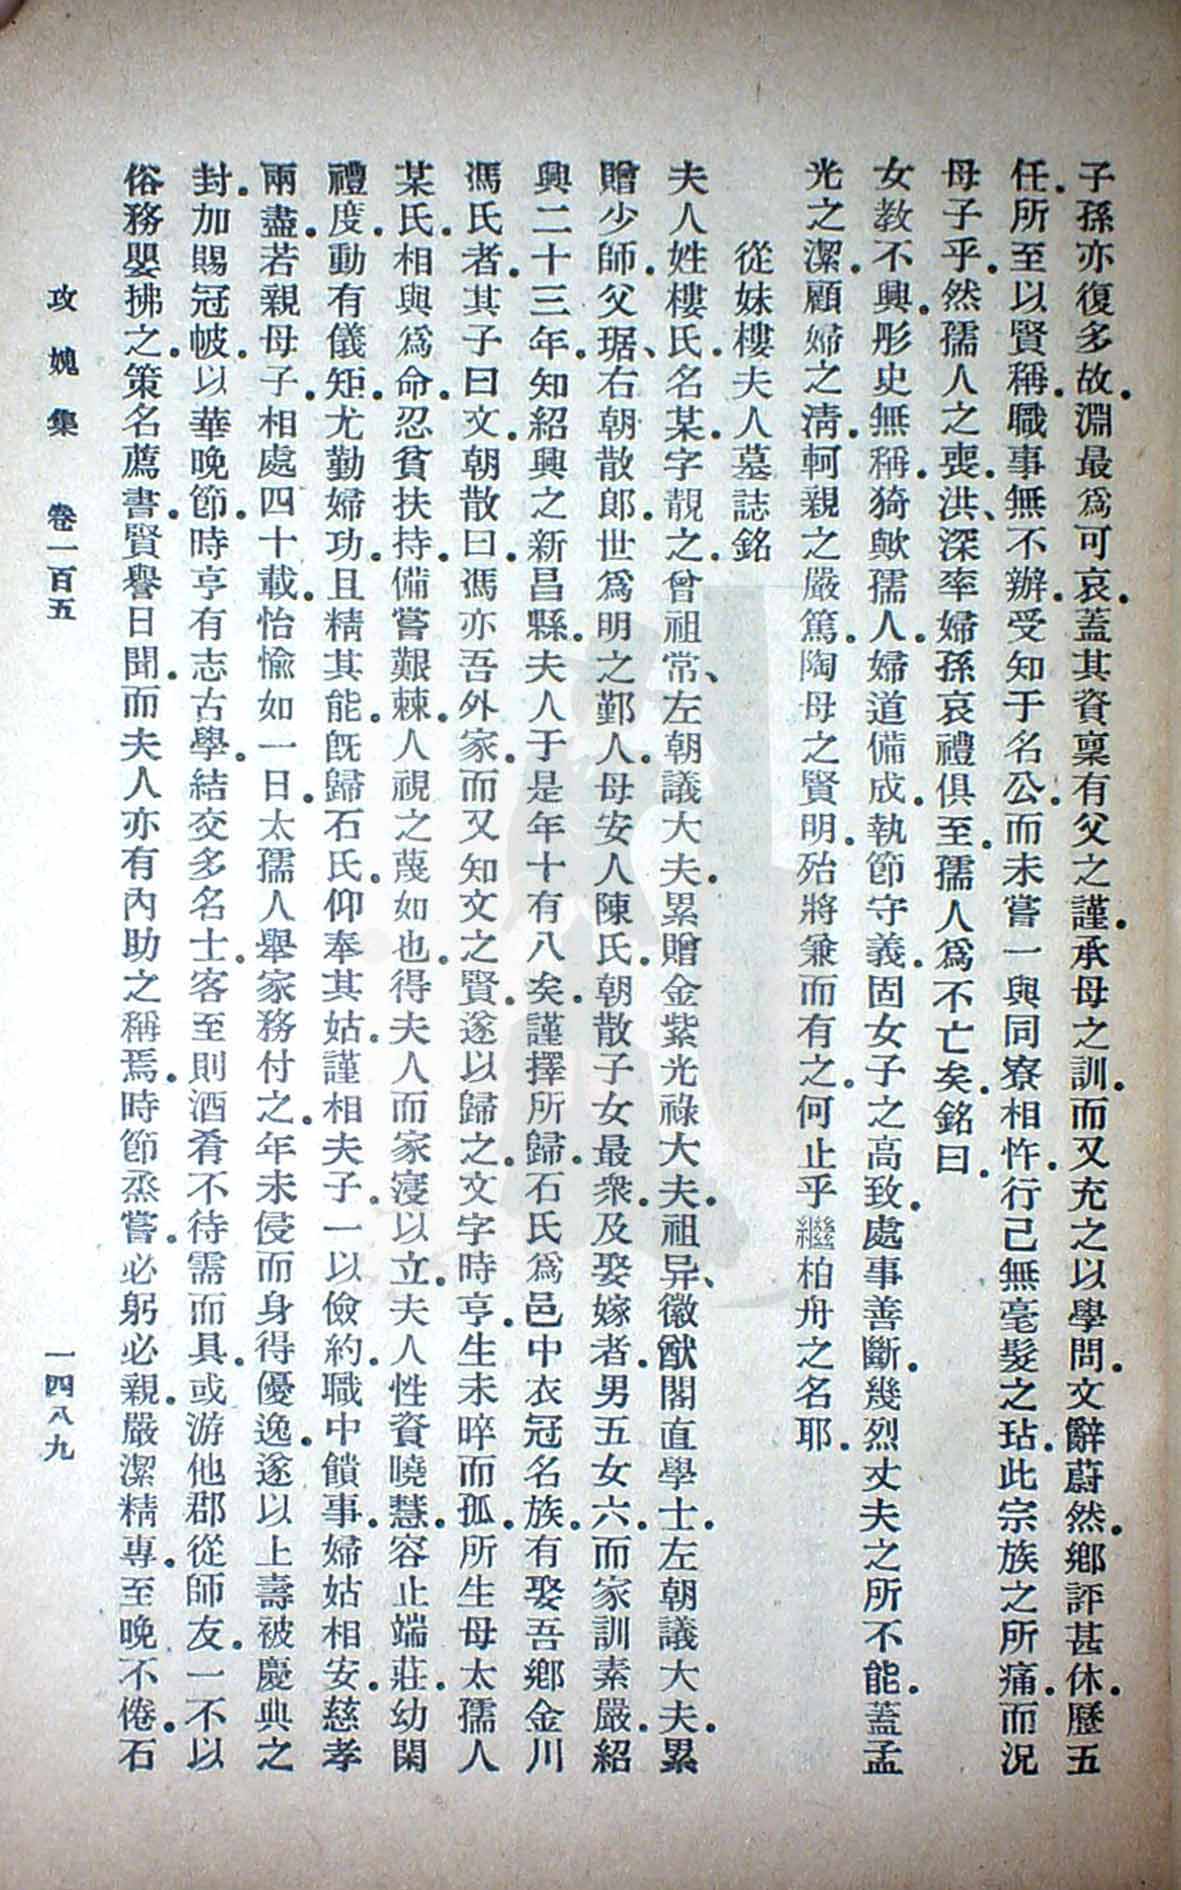 子孫亦復多故。淵最爲可哀。蓋其資稟有父之謹。承母之訓。而又充之以學問。文辭蔚然。鄉評甚休。歷五
任。所至以賢稱。職事無不辦。受知于名公。而未嘗一與同寮相忤。行己無毫髮之玷。此宗族之所痛。而況
母子乎。然孺人之喪。洪、深率婦孫哀禮俱至。孺人爲不亡矣。銘曰。
女教不興。彤史無稱。猗歟孺人。婦道備成。執節守義。固女子之高致。處事善斷。幾烈丈夫之所不能。蓋孟
光之潔。顧婦之淸。軻親之嚴篤。陶母之賢明。殆將兼而有之。何止乎繼柏舟之名耶。
從妹樓夫人墓誌銘
夫人姓樓氏。名某。字靚之。曾祖常、左朝議大夫。累贈金紫光祿大夫。祖异、徽猷閣直學士。左朝議大夫。累
贈少師。父琚、右朝散郎。世爲明之鄞人。母安人陳氏。朝散子女最衆。及娶嫁者。男五女六。而家訓素嚴。紹
興二十三年。知紹興之新昌縣。夫人于是年十有八矣。謹擇所歸。石氏爲邑中衣冠名族。有娶吾鄉金川
馮氏者。其子曰文。朝散曰。馮亦吾外家。而又知文之賢。遂以歸之。文字時亨。生未晬而孤。所生母太孺人
某氏。相與爲命。忍貧扶持。備嘗艱棘。人視之蔑如也。得夫人而家寖以立。夫人性資曉慧。容止端莊。幼閑
禮度。動有儀矩。尤勤婦功。且精其能。旣歸石氏。仰奉其姑。謹相夫子。一以儉約。職中饋事。婦姑相安。慈孝
兩盡。若親母子。相處四十載。怡愉如一日。太孺人舉家務付之。年未侵而身得優逸。遂以上壽被慶典之
封。加賜冠帔。以華晚節。時亨有志古學。結交多名士。客至則酒肴不待需而具。或游他郡從師友。一不以
俗務嬰拂之。策名薦書。賢譽日聞。而夫人亦有內助之稱焉。時節烝嘗。必躬必親。嚴潔精專。至晚不倦。石
攻媿集 卷一百五 一四八九